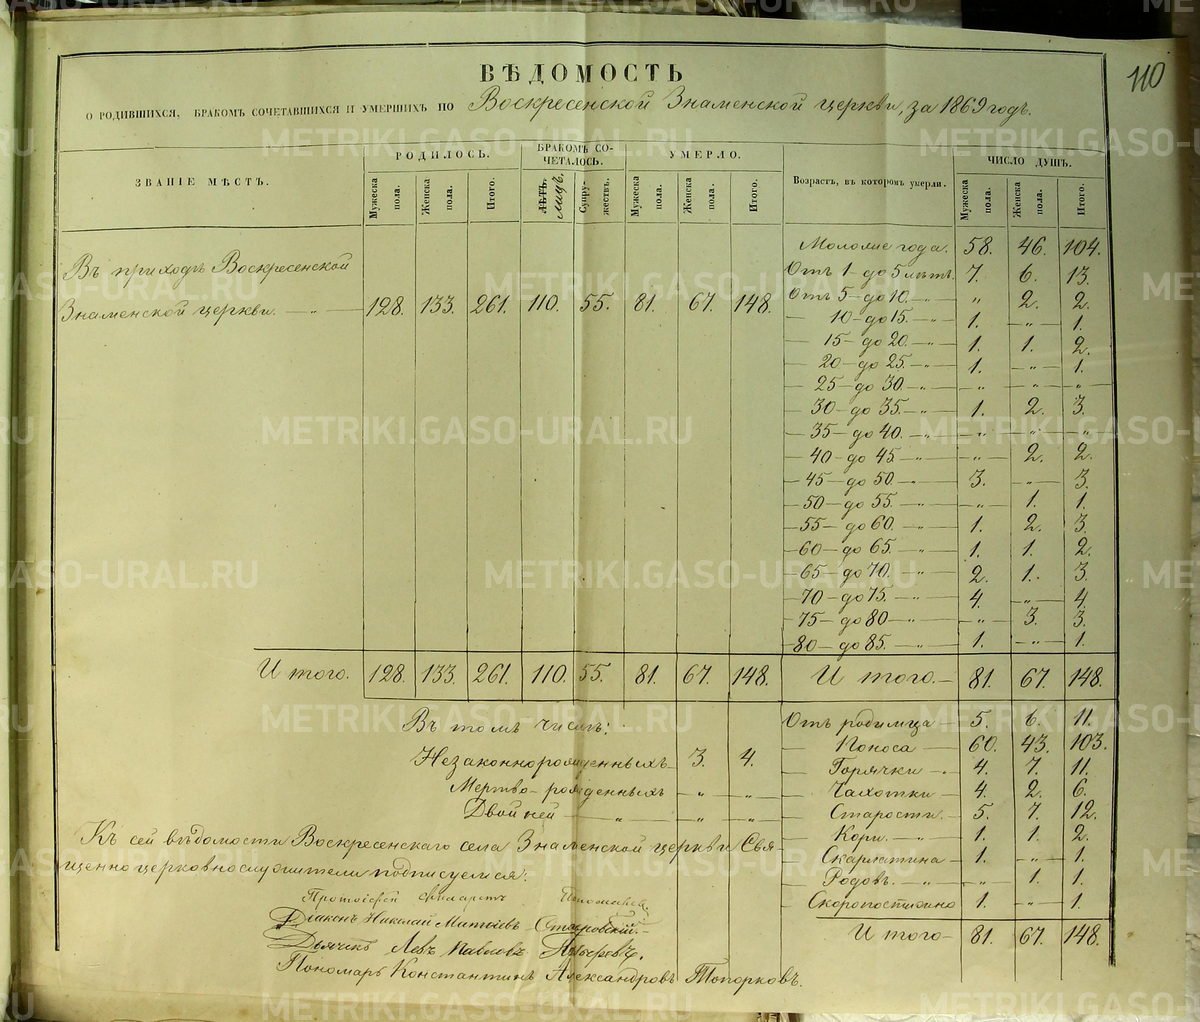 110
ВѢДОМОСТЬ
О РОДИВШИХСЯ, БРАКОМЪ СОЧЕТАВШИХСЯ И УМЕРШИХЪ ПО Воскресенской Знаменской церкви, за 1869 годъ.
ЗВАНІЕ МѢСТЪ. РОДИЛОСЬ. БРАКОМЪ СОЧЕТАЛОСЬ. УМЕРЛО. Возрастъ, въ которомъ умерли. ЧИСЛО ДУШЪ.
Мужеска пола. Женска пола. Итого. лѣтъ. лицъ. Супружествъ. Мужеска пола. Женска пола. Итого. Мужеска пола. Женска пола. Итого.
Моложе года. 58. 46. 104.
Въ приходѣ Воскресенской Отъ 1 до 5 лѣтъ. 7. 6. 13.
Отъ 5 до 10. — " — " 2. 2.
Знаменской церкви. — " — 128. 133. 261. 110. 55. 81. 67. 148.
— 10 — до 15. — " — 1. — " — 1.
— 15 — до 20. — " — 1. 1. 2.
— 20 — до 25. — " — 1. — " — 1.
— 25 — до 30. — " — " — " — "
— 30 — до 35. — " — 1. 2. 3.
— 35 — до 40. — " — " — " — "
— 40 — до 45. — " — " — 2. 2.
— 45 — до 50. — " — 3. — " — 3.
— 50 — до 55. — " — " — 1. 1.
— 55 — до 60. — " — 1. 2. 3.
— 60 — до 65. — " — 1. 1. 2.
— 65 — до 70. — " — 2. 1. 3.
— 70 — до 75. — " — 4. — " — 4.
— 75 — до 80 — " — " — 3. 3.
— 80 — до 85. — " — 1. — " — 1.
Итого. 128. 133. 261. 110. 55. 81. 67. 148. Итого. — 81. 67. 148.
Въ томъ числѣ: Отъ родимца — 5. 6. 11.
— Поноса — 60. 43. 103.
Незаконнорожденныхъ 3. 4. — Горячки — 4. 7. 11.
Мертво-рожденныхъ — " — " — — Чахотки — 4. 2. 6.
Двойней — " — " — " — — Старости. — 5. 7. 12.
Къ сей вѣдомости Воскресенскаго села Знаменской церкви Свя- — Кори. — 1. 1. 2.
щенно церковнослужители подписуемся: — Скарлатина — 1. — " — 1.
— Родовъ. — " — " 1. 1.
— Скоропостижно 1. — " — 1.
Протоіерей
Діаконъ Николай Матѳіевъ
Итого — 81. 67. 148.
Дьячекъ Левъ Павловъ
Пономарь Константинъ Александровъ Топорковъ.
METRIKI.GASO-URAL.RU